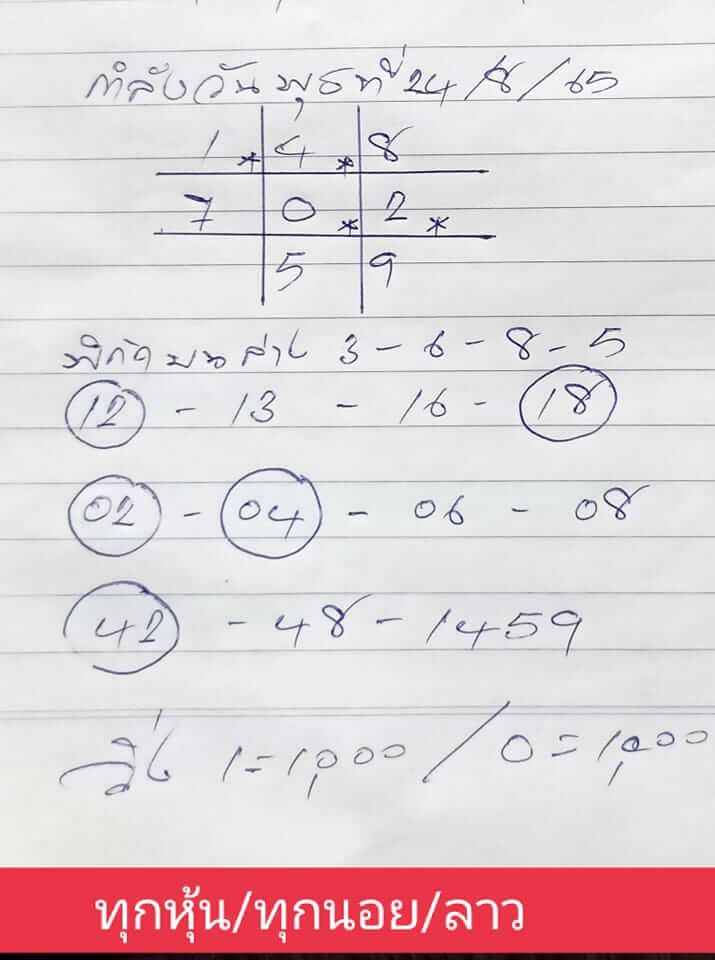 กำลังวันพุธที่ 24/8/65
1 * 4 * 8
7 0 * 2 *
5 9
พิกัด บน ล่าง 3 - 6 - 8 - 5
12 - 13 - 16 - 18
02 - 04 - 06 - 08
42 - 48 - 1459
วิ่ง 1 = 1,000 / 0 = 1,000
ทุกหุ้น/ทุกนอย/ลาว